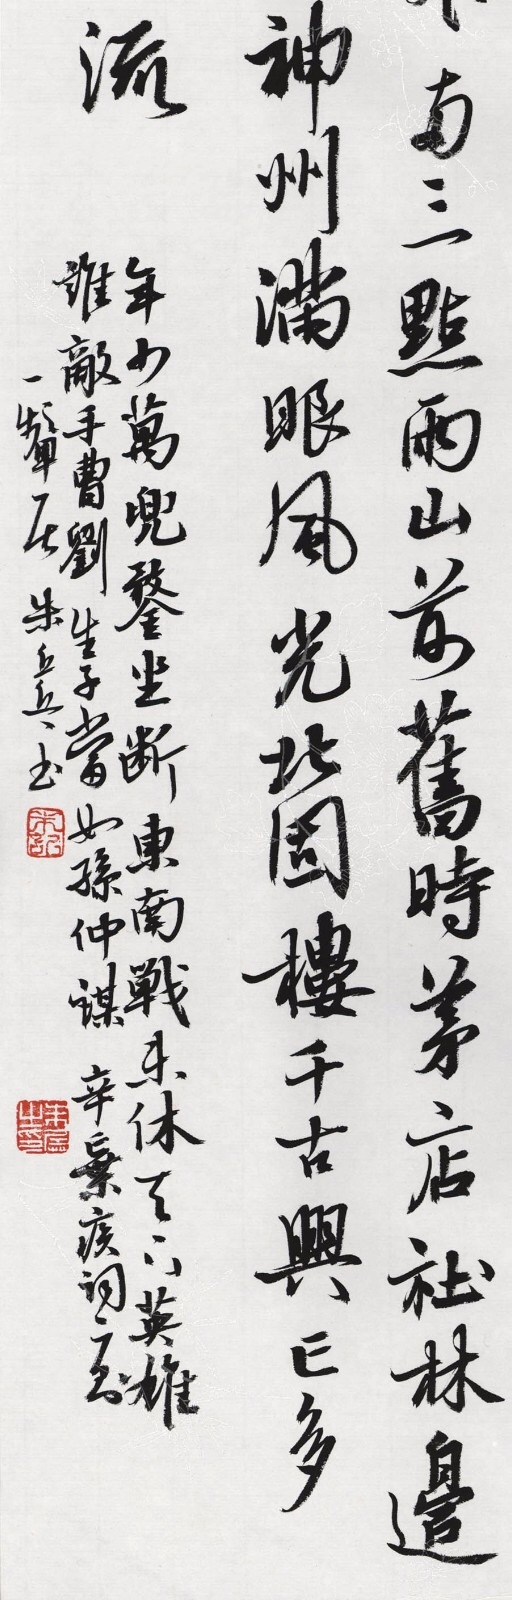 兩三點雨山前舊時茅店社林邊
神州滿眼風光北固樓千古興亡多
流
年少萬兜鍪坐断東南戰未休天下英雄
誰敵手曹劉生子當如孫仲謀 辛棄疾詞二首
一 居 朱 兵书